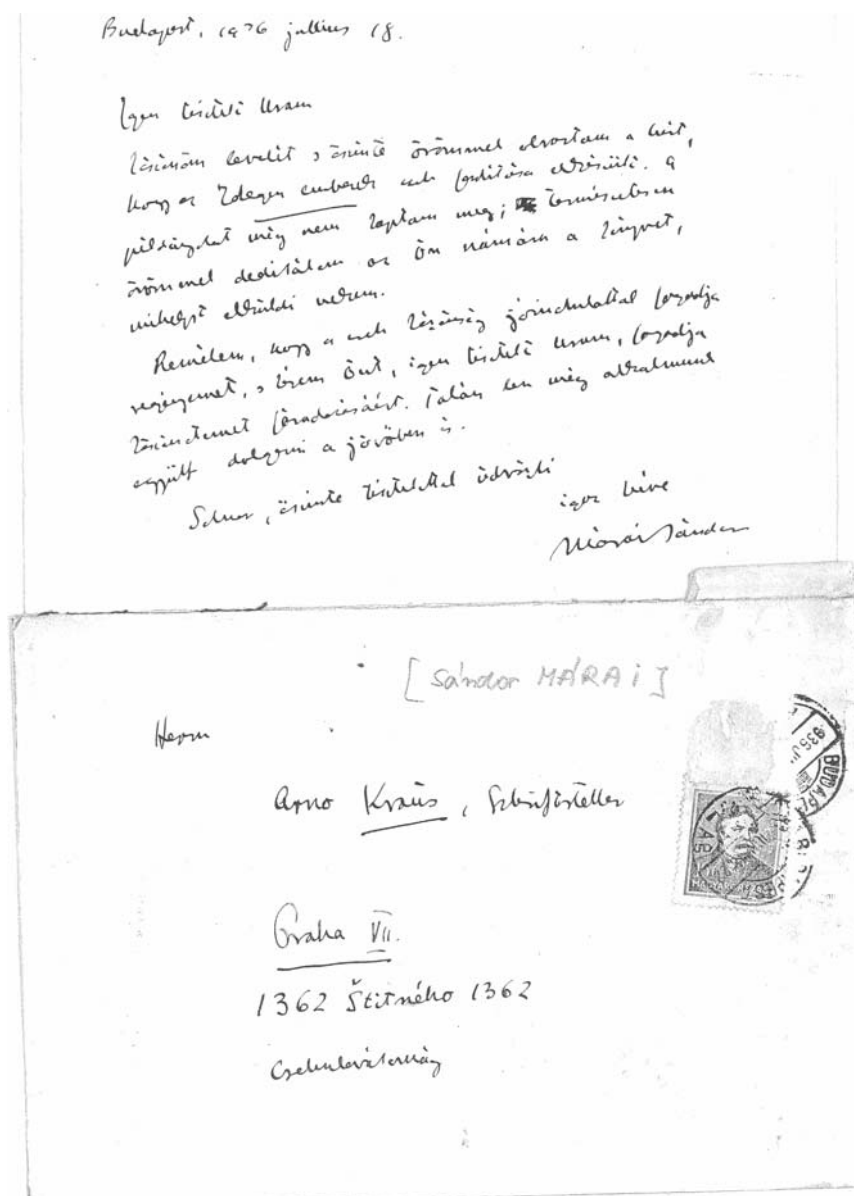 Budapest, 1936 július 18.
Igen tisztelt Uram
köszönöm levelét s őszinte örömmel olvastam a hírt,
hogy az Idegen emberek cseh fordítása elkészült. A
példányokat még nem kaptam meg; természetesen
örömmel dedikálom az Ön számára a könyvet,
mihelyst elküldi nekem.
Remélem, hogy a cseh közönség jóindulattal fogadja
regényemet, s kérem Önt, igen tisztelt Uram, fogadja
köszönetemet fáradozásáért. Talán lesz még alkalmunk
együtt dolgozni a jövőben is.
őszinte tisztelettel üdvözli
igaz híve
Márai Sándor
[Sándor MÁRAI]
Herrn
Arno Kraus, Schriftsteller
Praha VII.
1362 Štítného 1362
Csehszlovákország
BUDAPEST